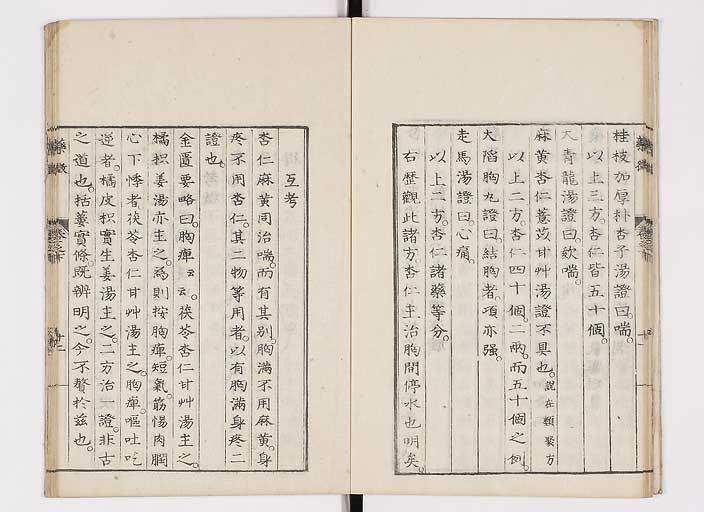 桂枝加厚朴杏子湯證曰喘。
以上三方。杏仁皆五十個。
大青龍湯證曰。欬喘。
麻黃杏仁薏苡甘艸湯證不具也。說在類聚方
以上二方。杏仁四十個。二兩。而五十個之例。
大陷胸丸證曰。結胸者。項亦强。
走馬湯證曰。心痛。
以上二方。杏仁諸藥等分。
右歷觀此諸方。杏仁主治胸間停水也明矣。
互考
杏仁麻黃同治喘。而有其別。胸滿不用麻黃。身
疼不用杏仁。其二物等用者。以有胸滿身疼二
證也。
金匱要略曰。胸痺云云。茯苓杏仁甘艸湯主之。
橘枳姜湯亦主之。爲則按胸痺。短氣。筋惕肉瞤
心下悸者。茯苓杏仁甘艸湯主之。胸痺。嘔吐吃
逆者。橘皮枳實生姜湯主之。二方治一證。非古
之道也。括蔞實條。既辨明之。今不贅於茲也。
藥徵
藥徵